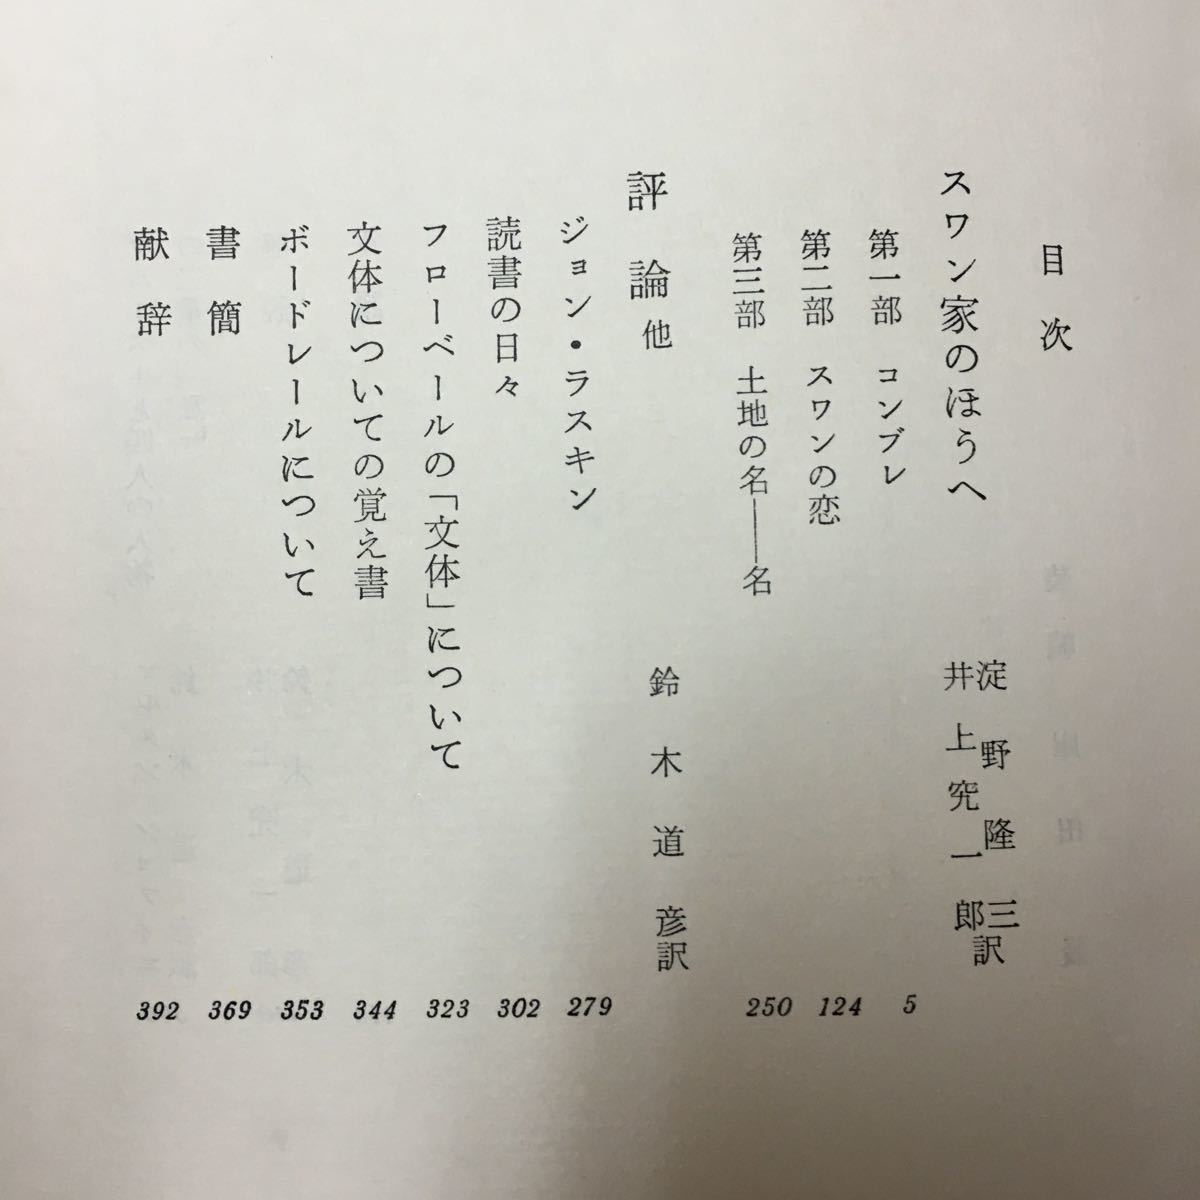 目次
スワン家のほうへ 淀野隆三 井上究一郎訳
第一部 コンブレ 5
第二部 スワンの恋 124
第三部 土地の名――名 250
評論他 鈴木道彦訳
ジョン・ラスキン 279
読書の日々 302
フローベールの「文体」について 323
文体についての覚え書 344
ボードレールについて 353
書簡 369
献辞 392